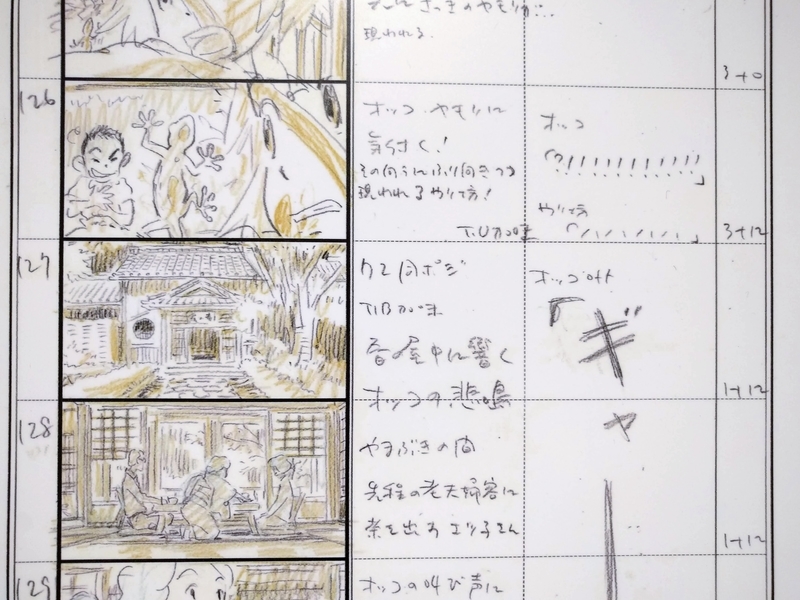 現われる。
3+0
126
オッコ やもりに
気付く!
その向うにふり向きつつ
現われるやり坊!
T.U加味
オッコ
「?!!!!!!!!!!!
」
「/////」
3+12
127
カ2同ポジ
T.B加味
音屋中に響く
オッコの悲鳴
オッコoff
「ギ
1+12
128
やまぶきの間
先程の老夫婦客に
茶を出すエツ子さん
ャ
1+12
129
オッコの叫び声に